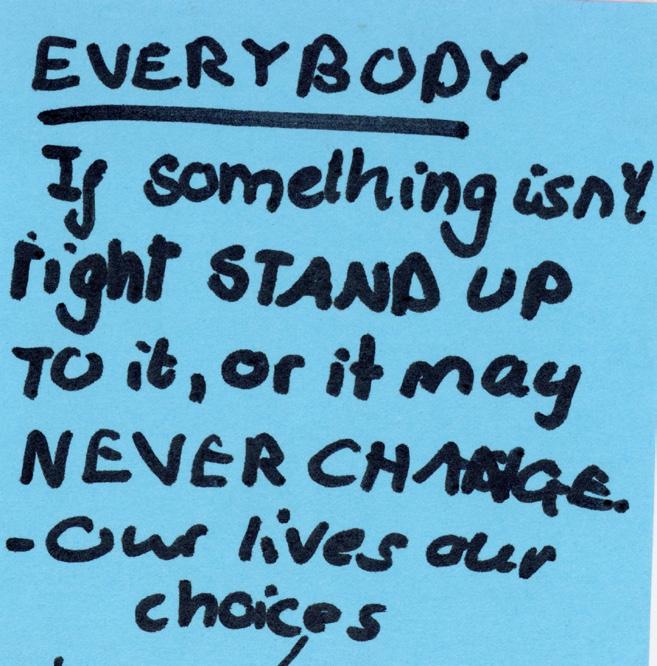 EVERYBODY
If something isn't
right STAND UP
TO it, or it may
NEVER CHANGE.
-Our lives our
choices